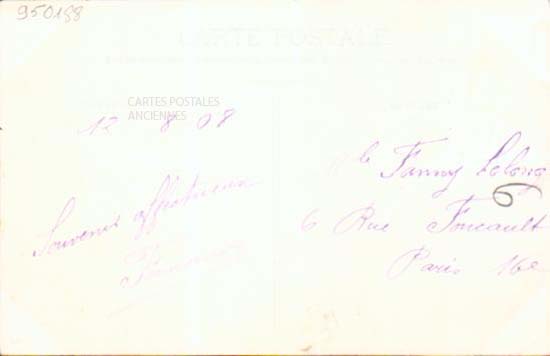 950188
CARTE POSTALE
CARTES POSTALES
ANCIENNES
12 8 08
Souvenir affectueux
Mlle Fanny Lelong
6
6 Rue Foucault
Paris 16e